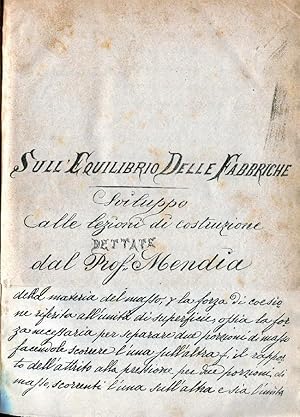 SULL'EQUILIBRIO DELLE FABBRICHE
Sviluppo
alle lezioni di costruzione
DETTATE
dal Prof. Mendia
della materia del masso, γ la forza di coesio
ne riferita all'unità di superficie, ossia la for
za necessaria per separare due porzioni di masso
facendole scorrere l'una sull'altra, f il rappor
to dell'attrito alla pressione per due porzioni di
masso, scorrenti l'una sull'altra e sia l'unità